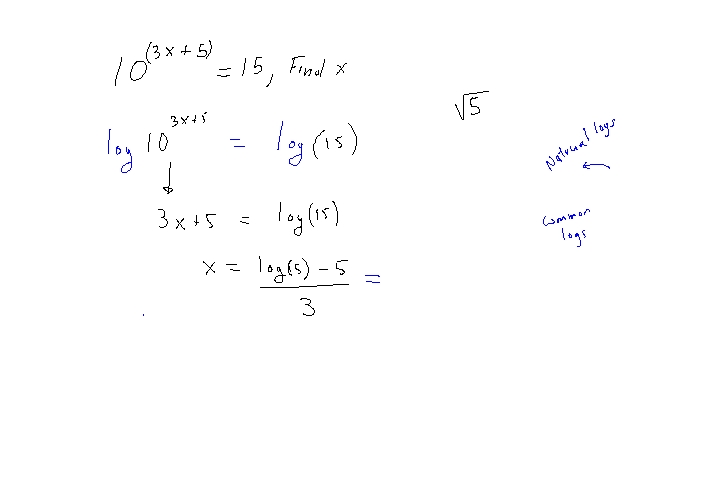 10^(3x+5) = 15, Find x
√5
log 10^3x+5 = log(15)
Natural logs
3x+5 = log(15)
common
logs
x = log(5) - 5 =
3